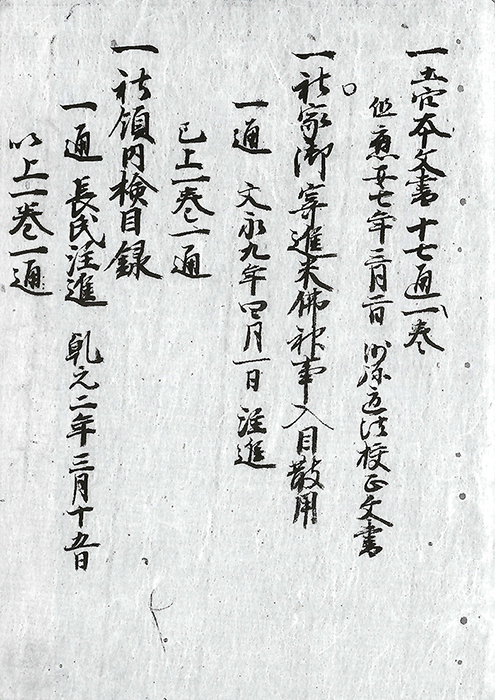 一 本文書 十七通 一巻
但應安七年三月二日 沙弥道法校正文書
一 社家御寄進米佛神事入目散用
一通 文永九年四月一日 注進
已上一巻一通
一 社領内検目録
一通 長氏注進 乾元二年三月十五日
以上一巻一通